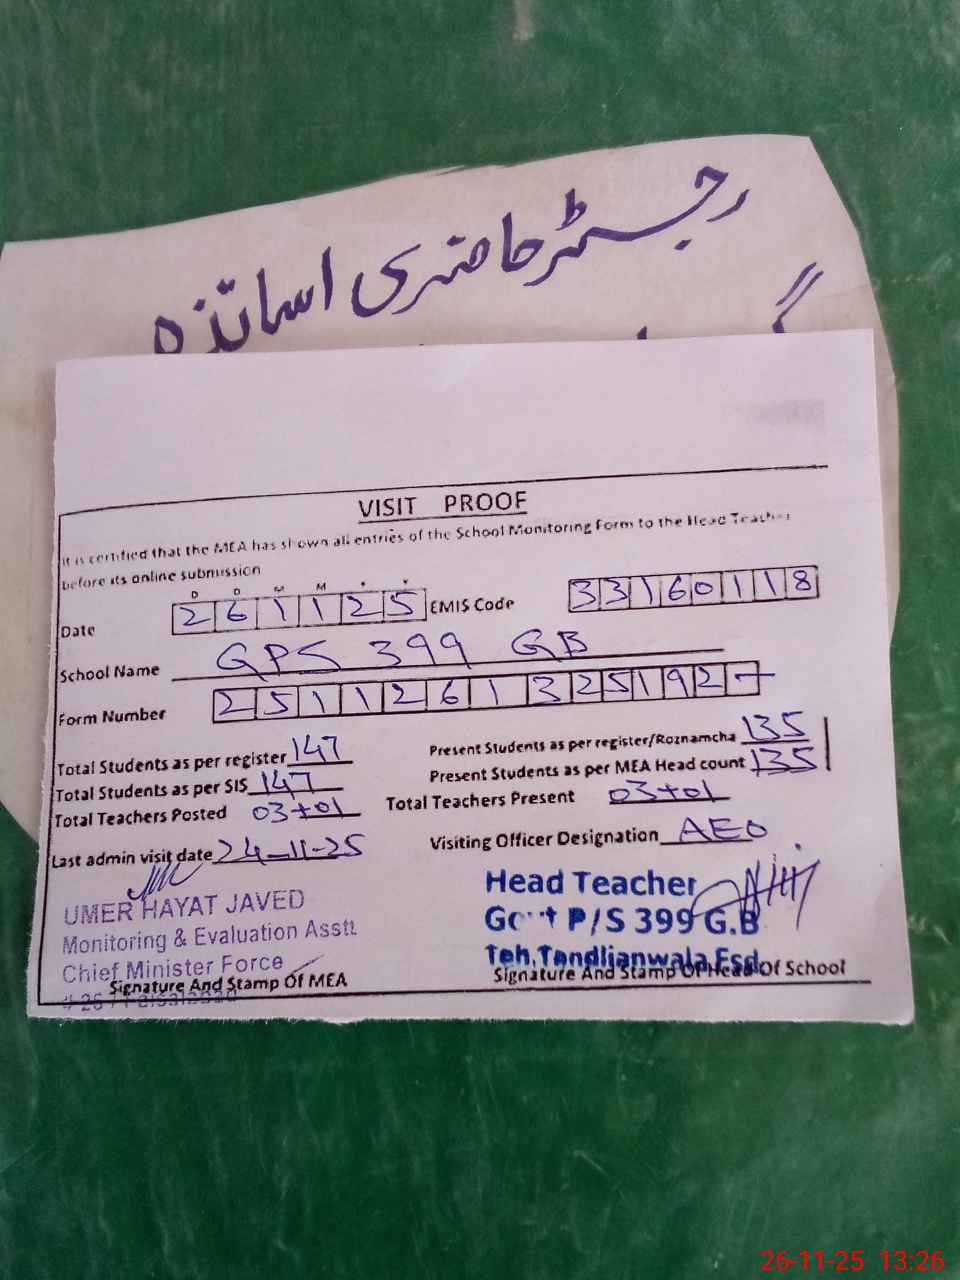 رجسٹر حاضری اساتذہ
VISIT PROOF
It is certified that the MEA has shown all entries of the School Monitoring Form to the Head Teacher
before its online submission
D D M M Y Y
Date 261125 EMIS Code 33160118
School Name GPS 399 GB
Form Number 2511261325192
Total Students as per register 147 Present Students as per register/Roznamcha 135
Total Students as per SIS 147 Present Students as per MEA Head count 135
Total Teachers Posted 03+01 Total Teachers Present 03+01
Last admin visit date 24-11-25 Visiting Officer Designation AEO
UMER HAYAT JAVED
Monitoring & Evaluation Asstt
Chief Minister Force
Signature And Stamp Of MEA
# 26 Faisalabad
Head Teacher
Govt P/S 399 G.B
Teh, Tandlianwala, Fsd
Signature And Stamp Of Head Of School
26-11-25 13:26